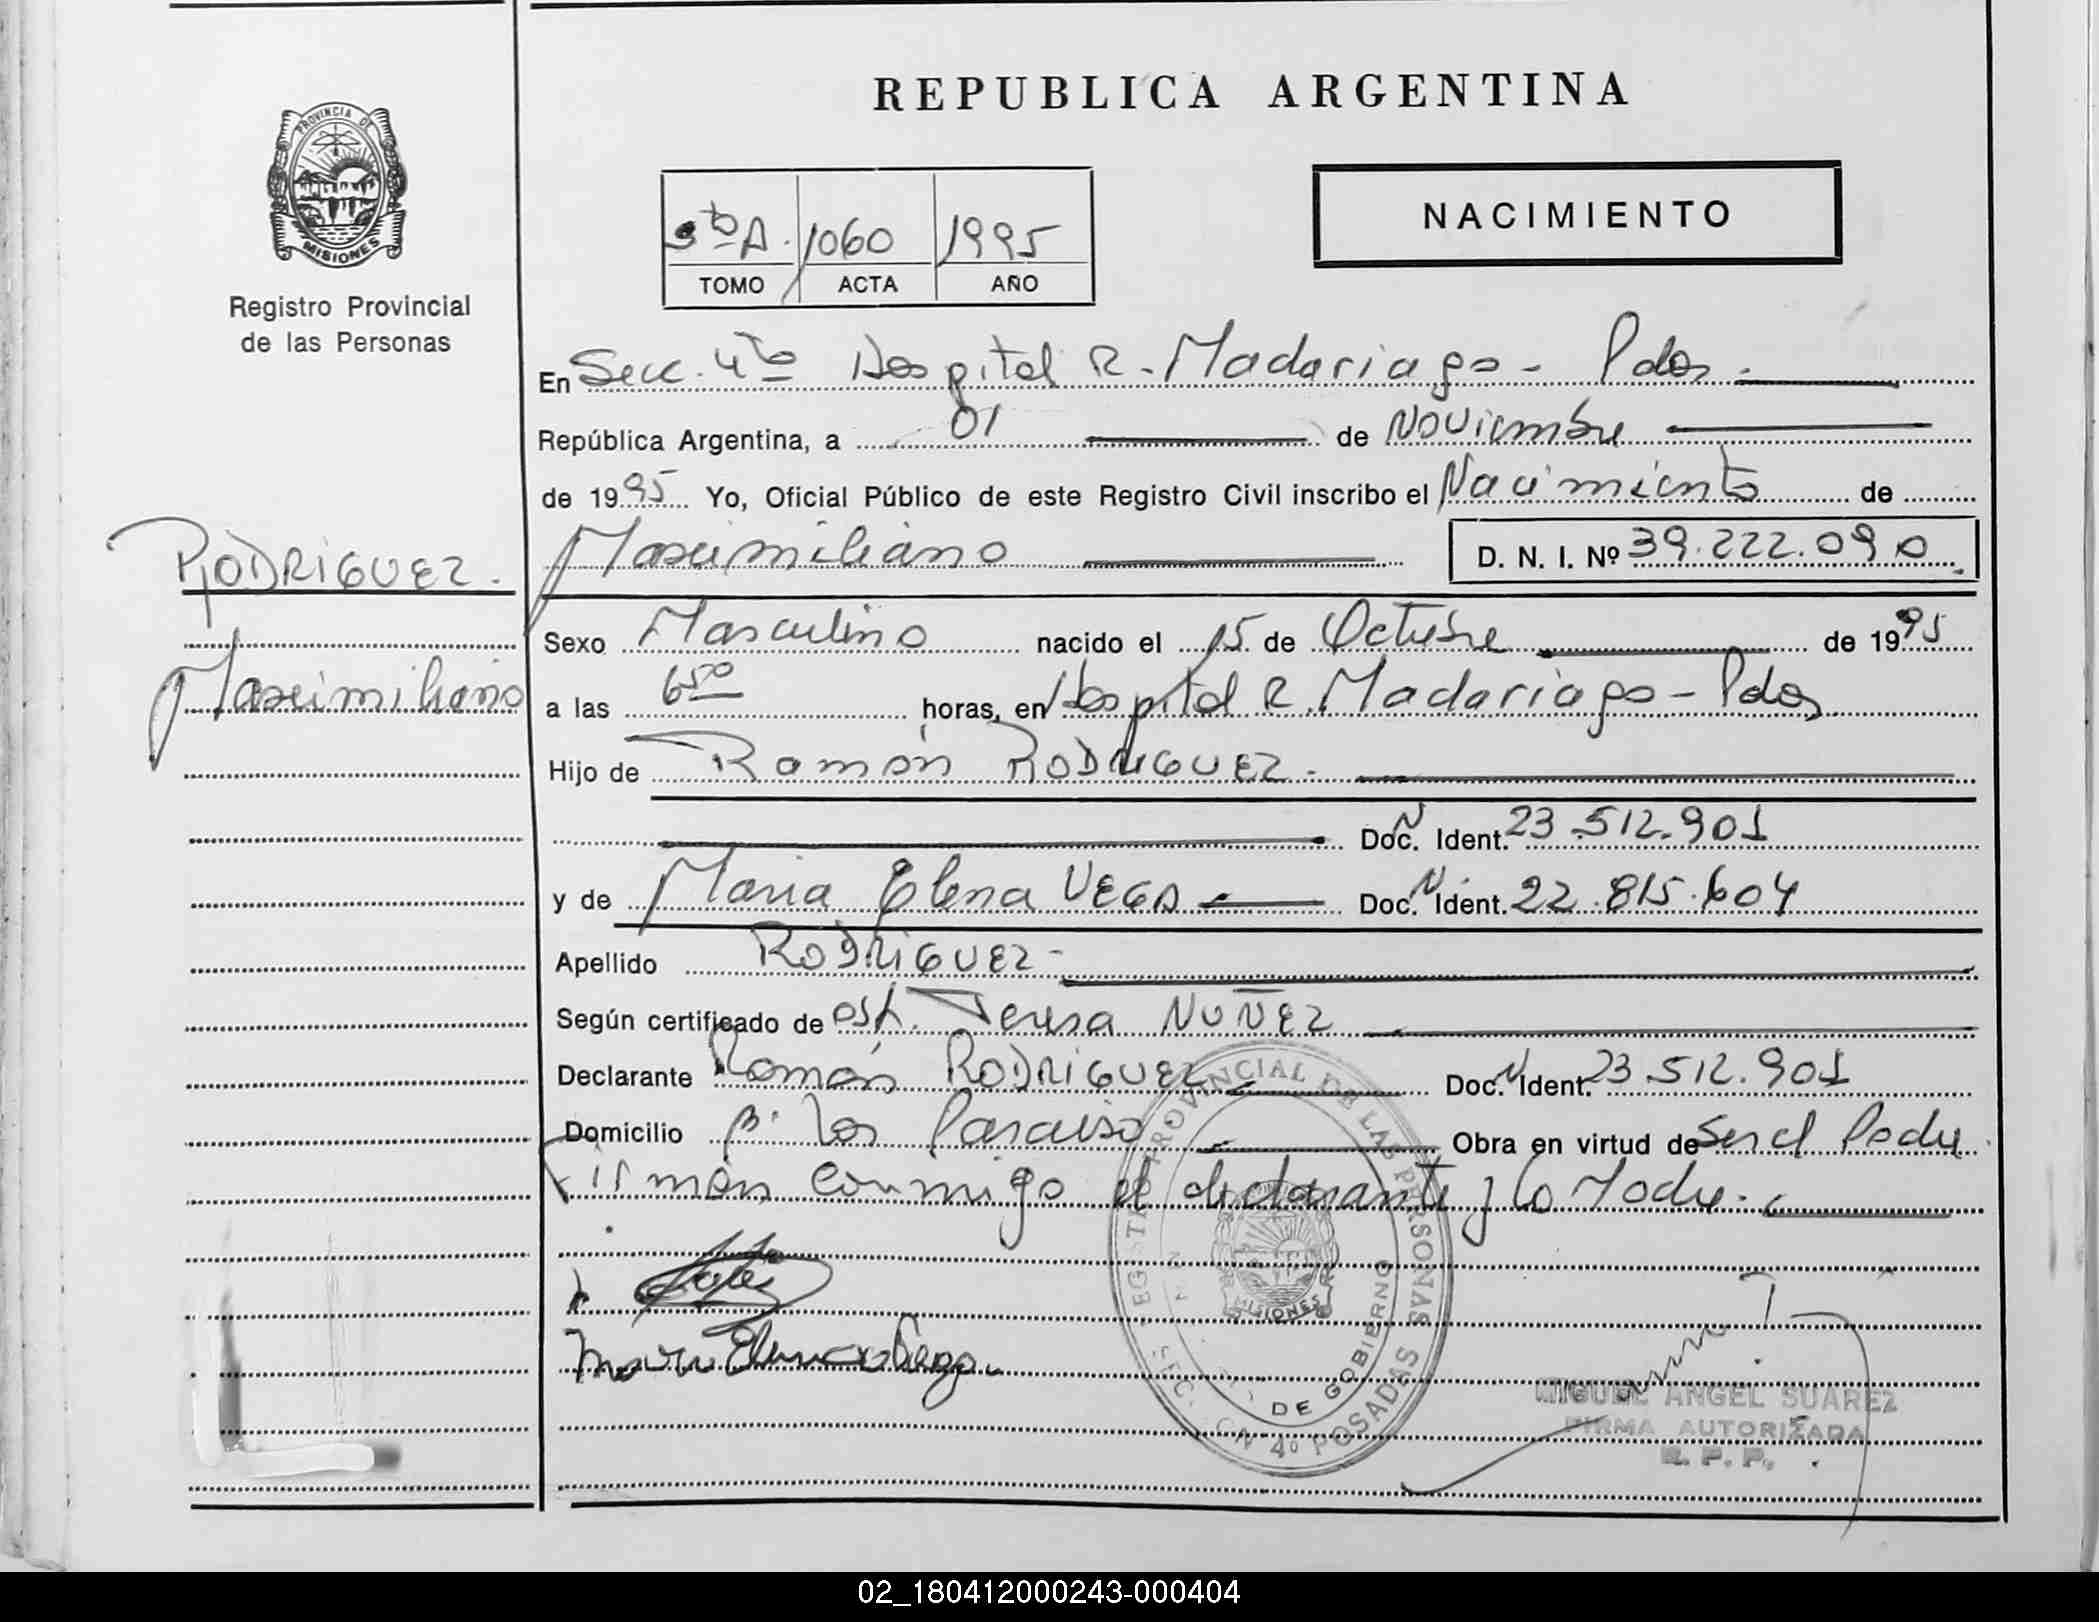 REPUBLICA ARGENTINA
PROVINCIA DE
MISIONES
Registro Provincial
de las Personas
NACIMIENTO
5to A. 1060 1995
TOMO ACTA AÑO
En Secc. 4to Hospital R. Madariaga - Pdas.
República Argentina, a 01 de Noviembre
de 1995 Yo, Oficial Público de este Registro Civil inscribo el Nacimiento de
Maximiliano D. N. I. Nº 39.222.090
RODRIGUEZ.
Maximiliano
Sexo Masculino nacido el 15 de Octubre de 1995
a las 6 50 horas, en Hospital R. Madariaga - Pdas
Hijo de Ramón RODRIGUEZ.
Doc. N Ident. 23.512.901
y de Maria Elena VEGA Doc. N Ident. 22.815.604
Apellido RODRIGUEZ -
Según certificado de obst. Teresa NUÑEZ
Declarante Ramón RODRIGUEZ Doc. N Ident. 23.512.901
Domicilio Bº Los Paraiso Obra en virtud de Ser el Padre
Firman conmigo el declarante y la Madre.
Maria Elena Vega
REGISTRO PROVINCIAL DE LAS PERSONAS
MISIONES
DE GOBIERNO
SECCION 4º POSADAS
MIGUEL ANGEL SUAREZ
FIRMA AUTORIZADA
R. P. P.
02_180412000243-000404